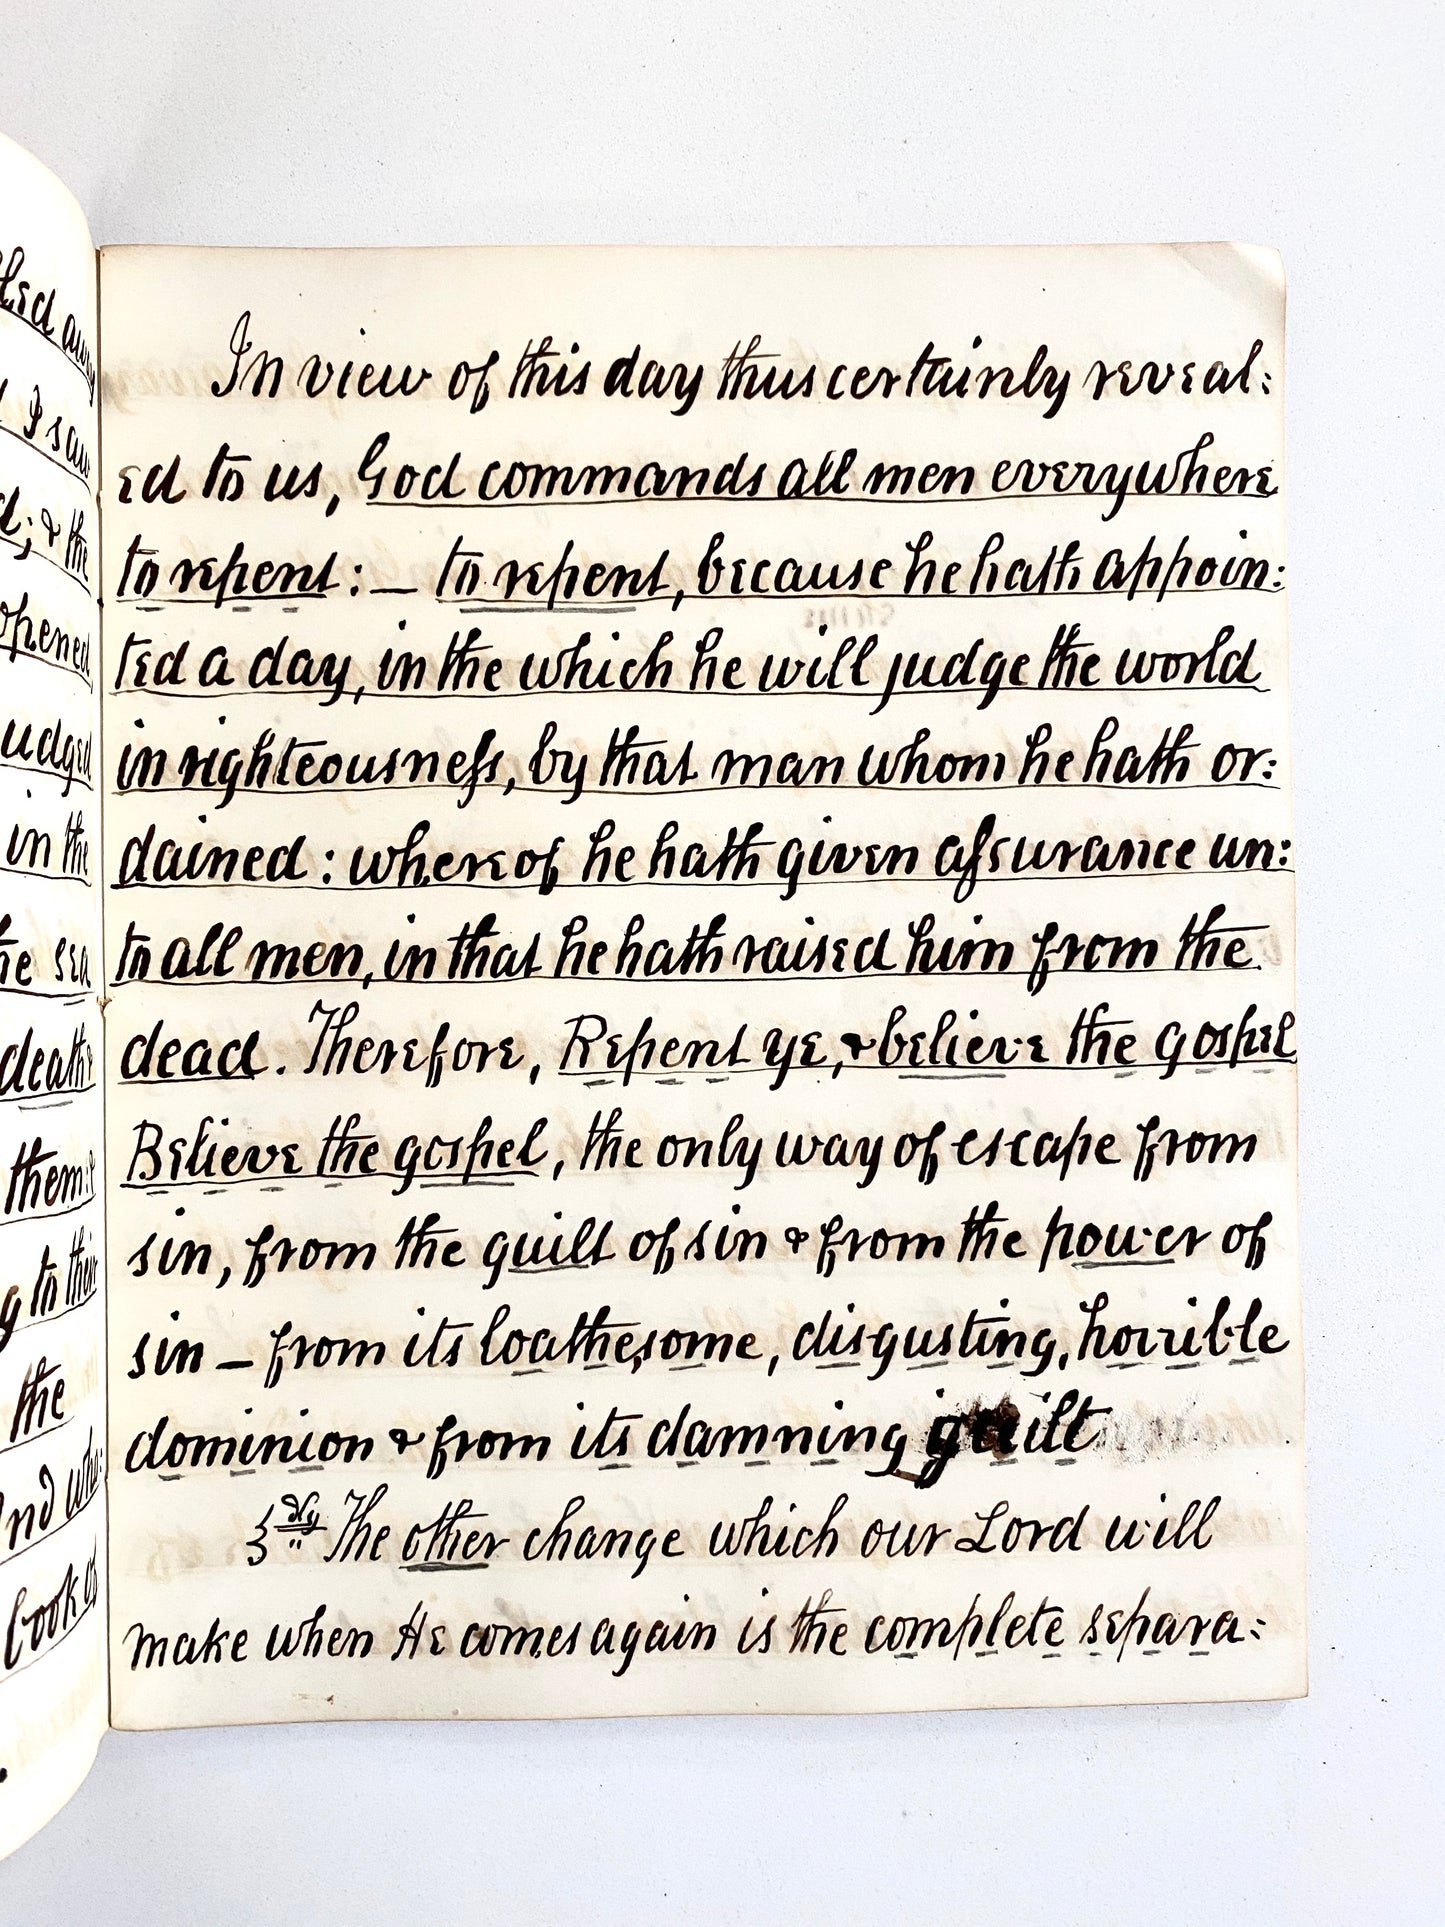 In view of this day thus certainly reveal:
ed to us, God commands all men everywhere
to repent: — to repent, because he hath appoin:
ted a day, in the which he will judge the world
in righteousness, by that man whom he hath or:
dained: whereof he hath given assurance un:
to all men, in that he hath raised him from the
dead. Therefore, Repent ye, & believe the gospel
Believe the gospel, the only way of escape from
sin, from the guilt of sin & from the power of
sin — from its loathesome, disgusting, horrible
dominion & from its damning guilt
3dly The other change which our Lord will
make when He comes again is the complete separa:
away
I saw
; & the
opened
udged
in the
he sea
death
them:
g to their
the
And who:
book of